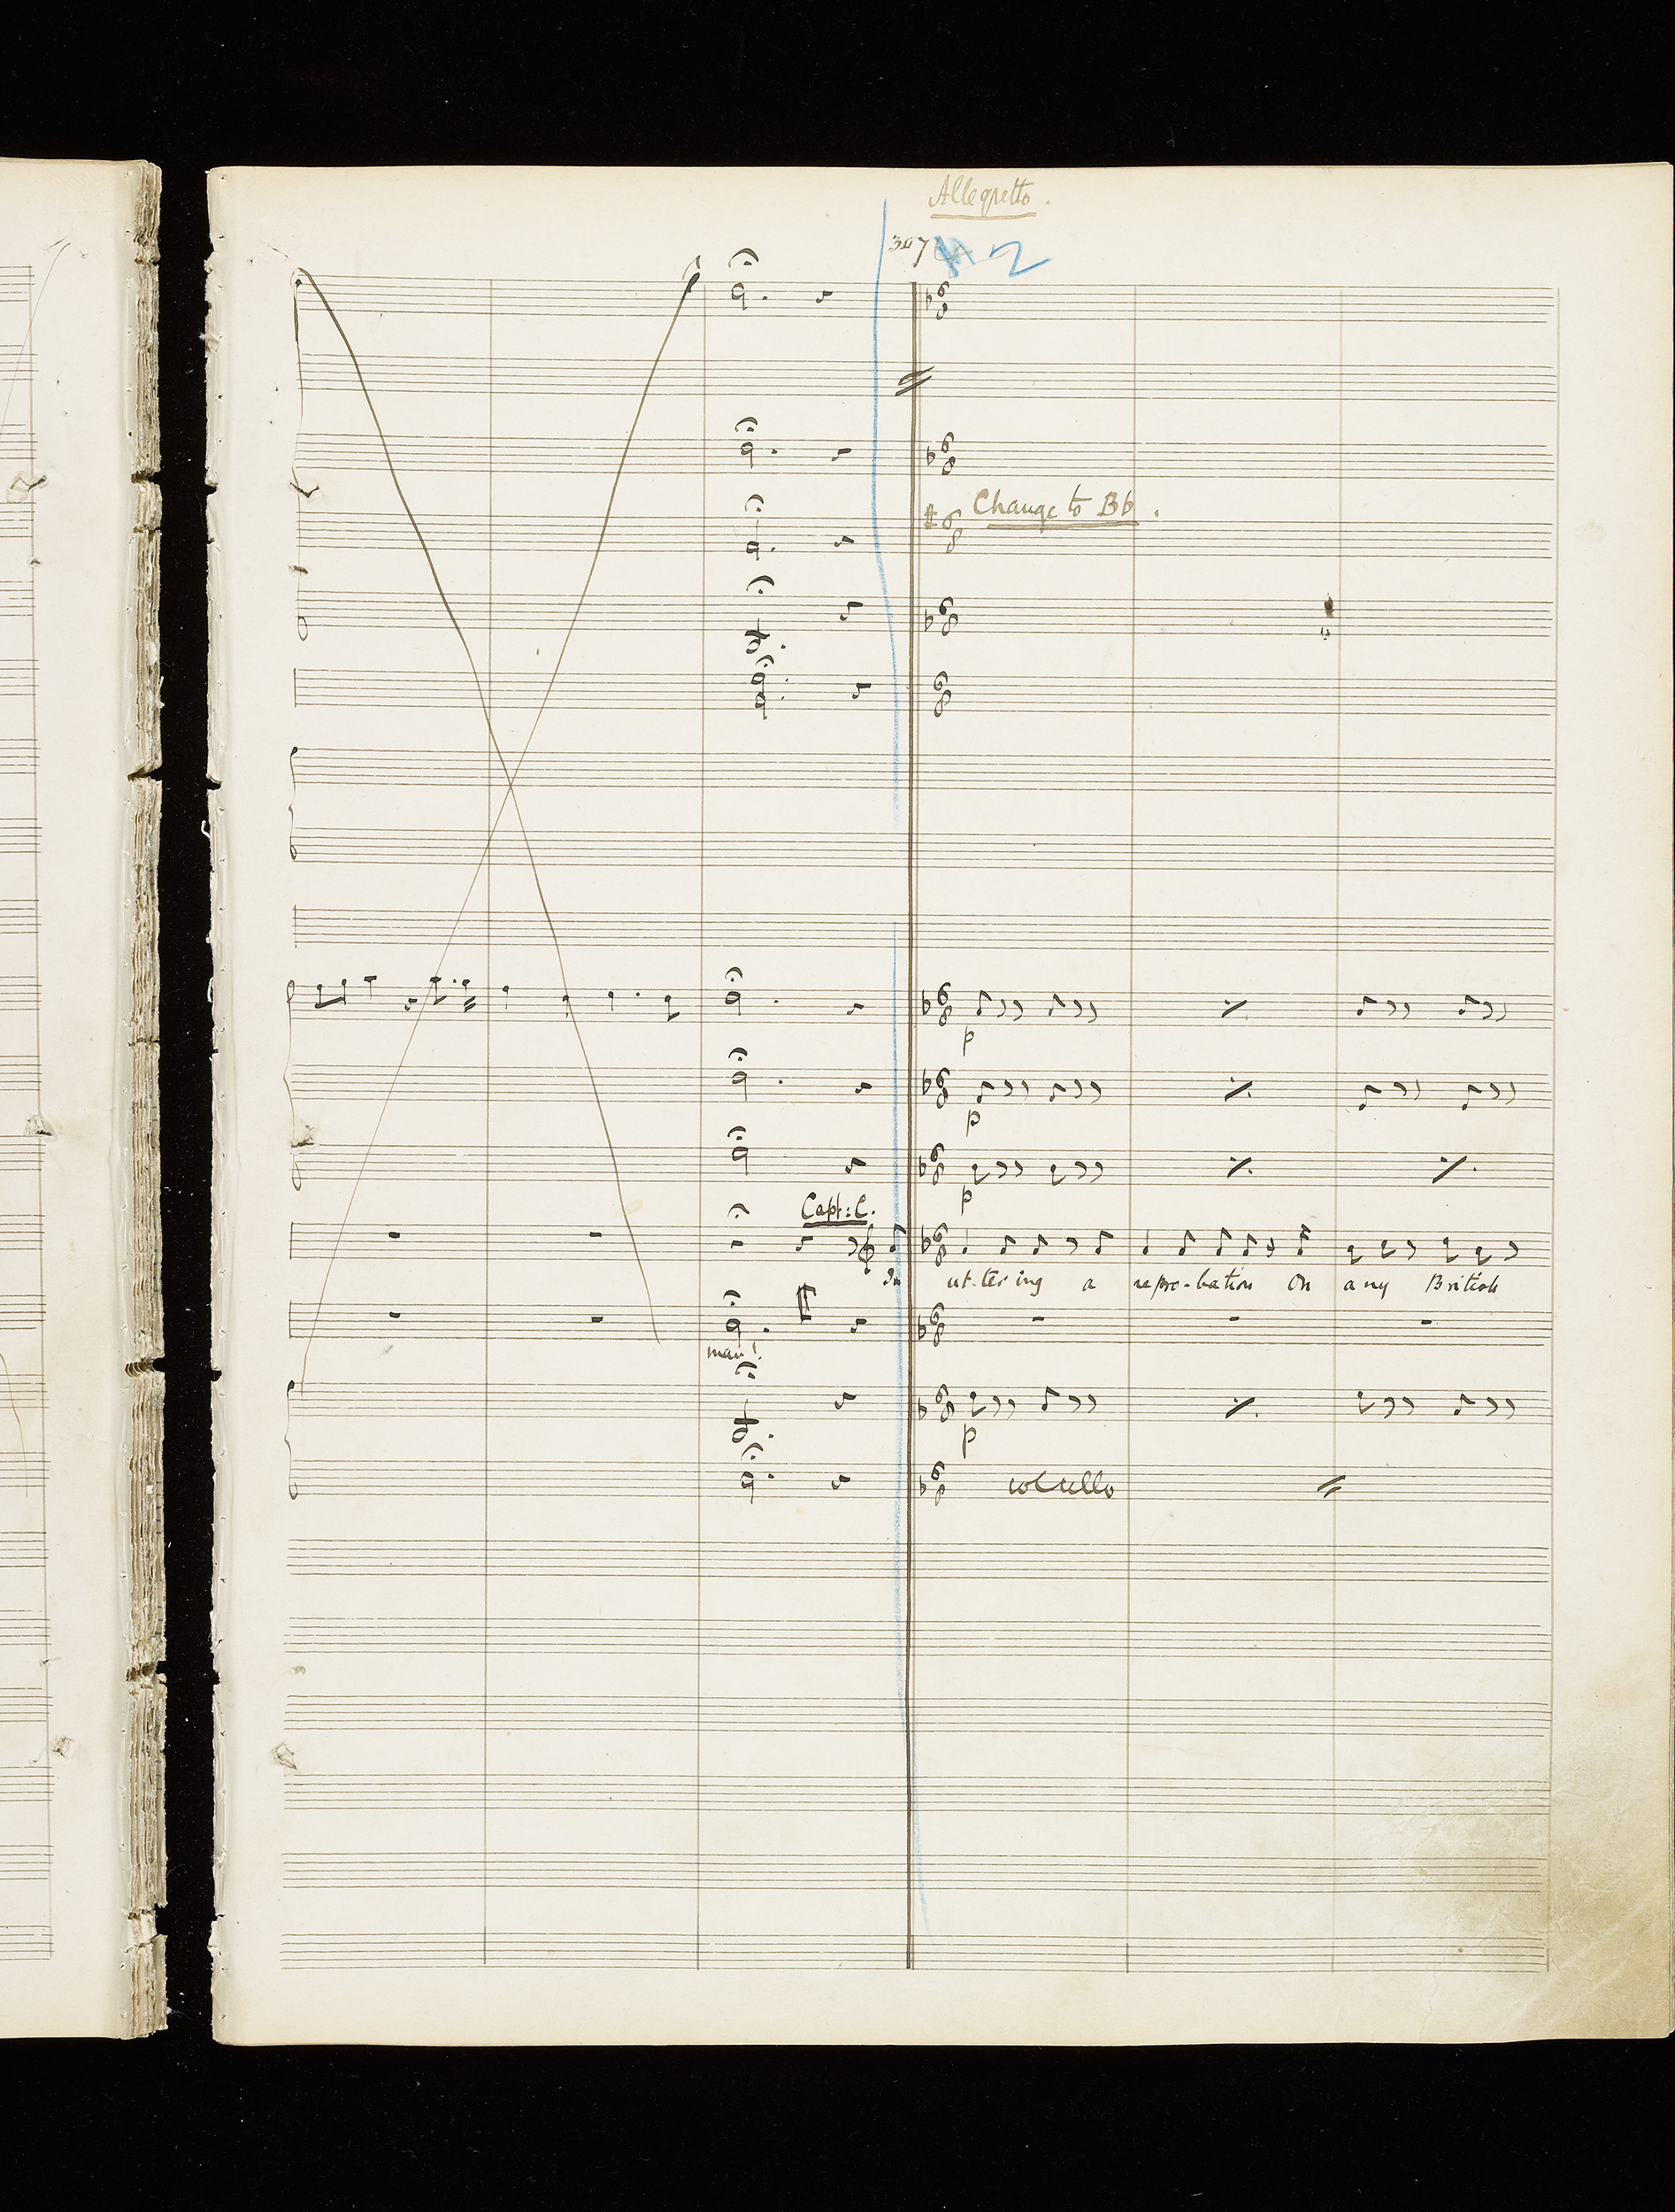 Allegretto.
307 2
Change to Bb.
p
p
p
Capt: C.
In ut-ter ing a repro-bation On any British
man!
p
col cello